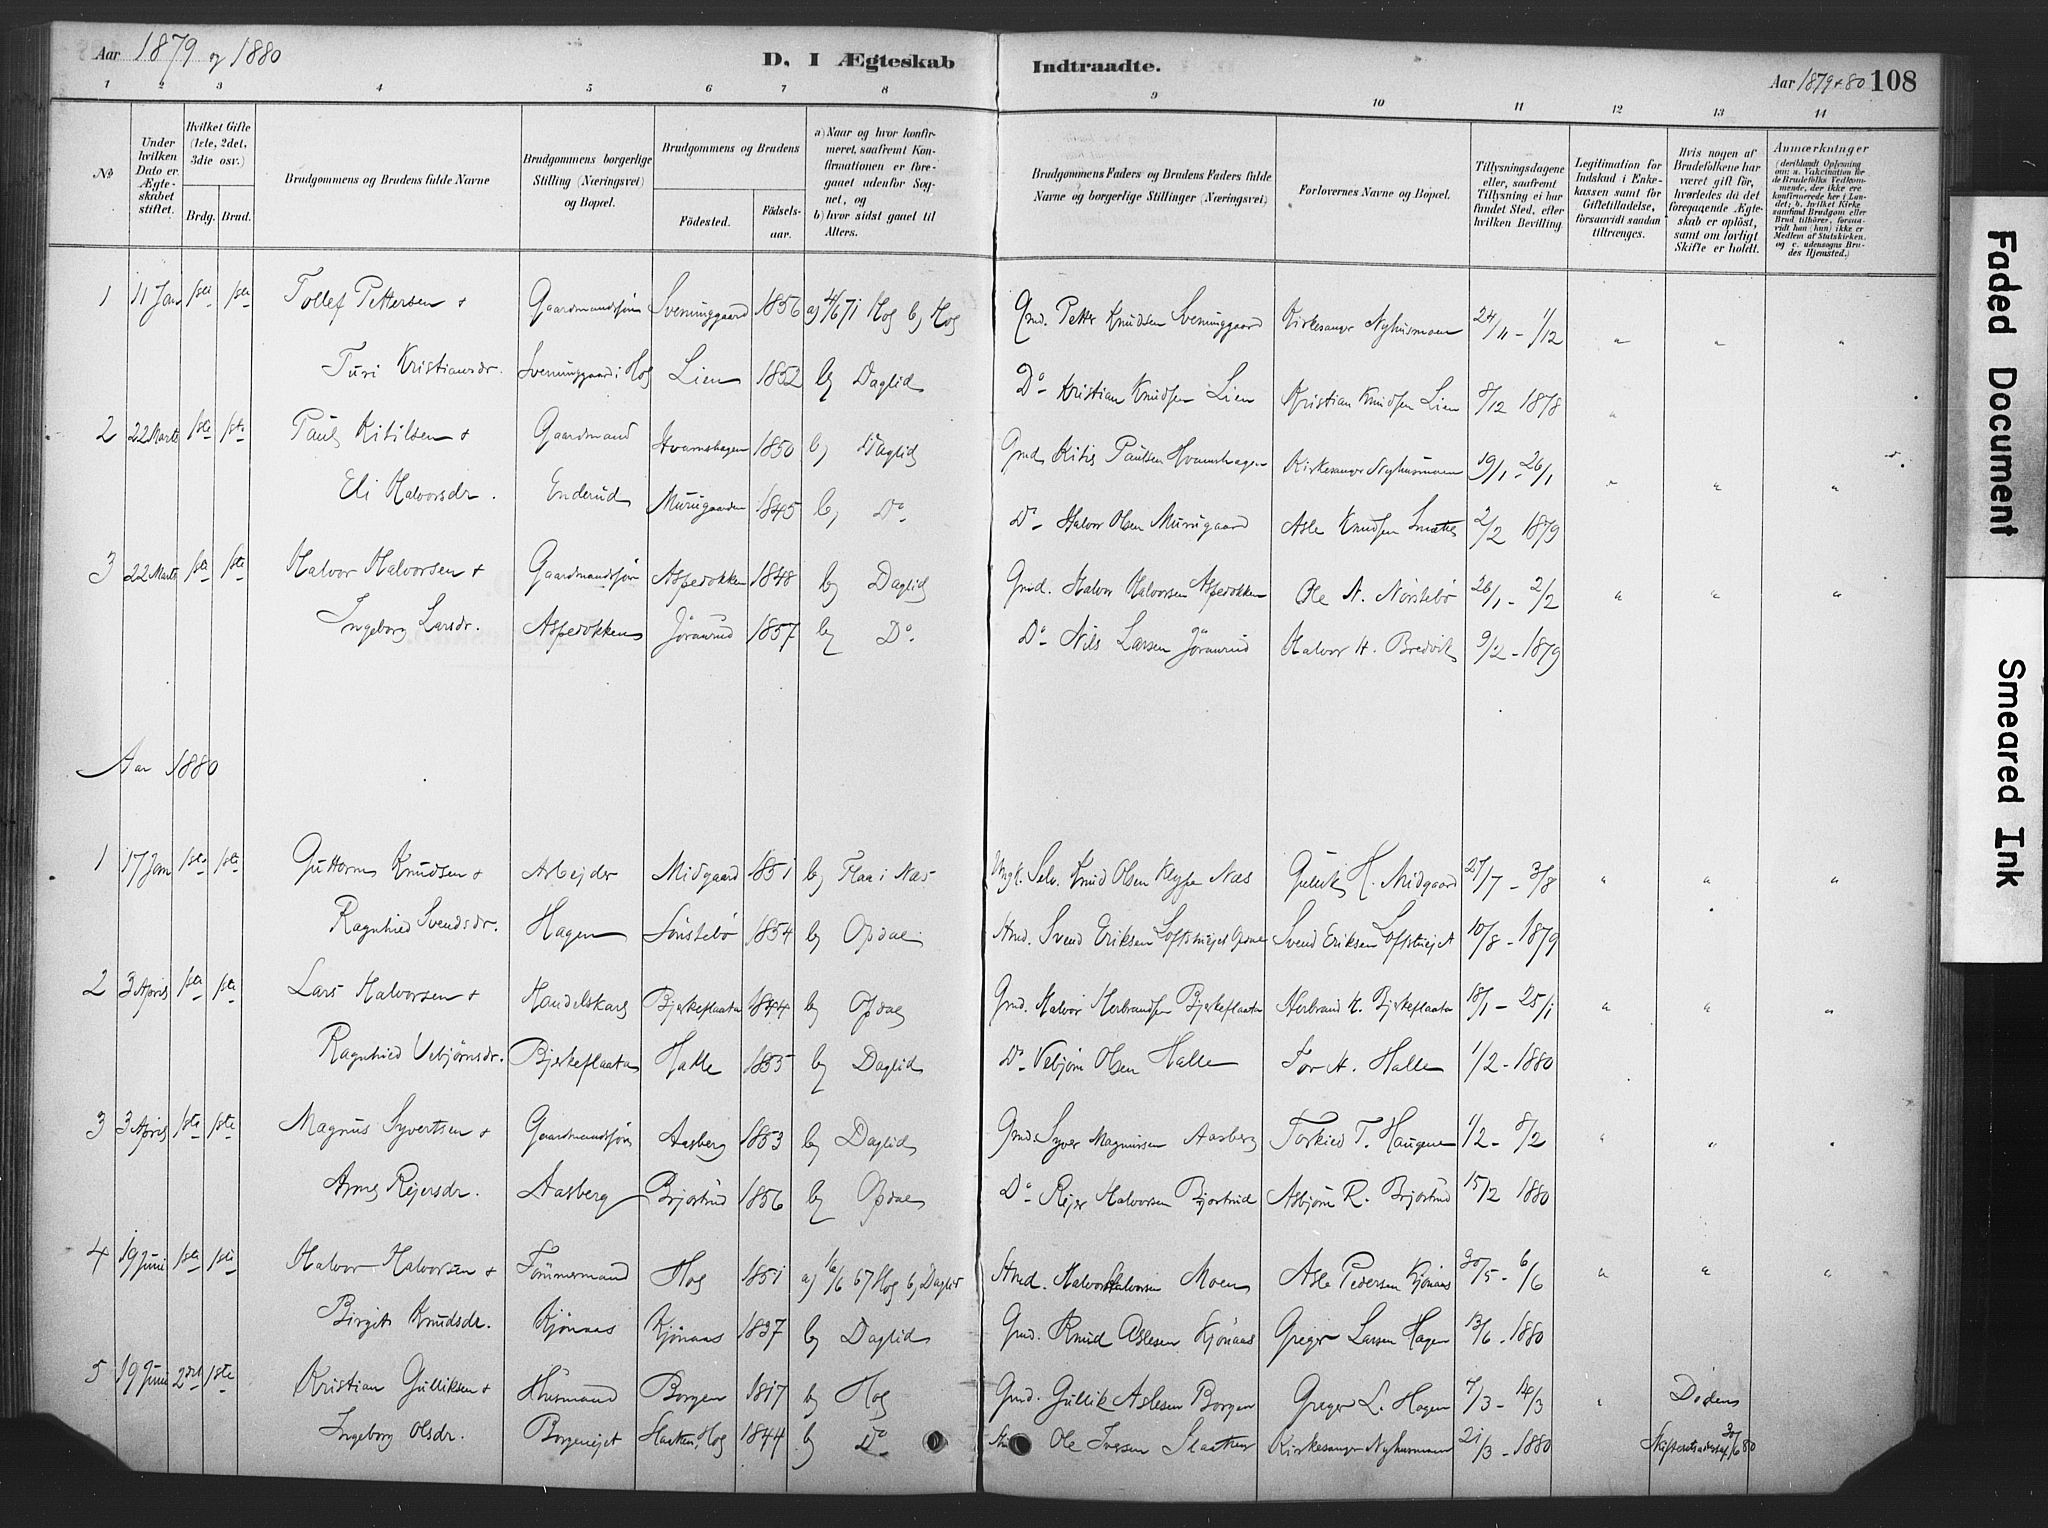 Aar 1879 og 1880
D. I Ægteskab Indtraadte.
Aar 1879 + 80 108
1 2 3 4 5 6 7 8 9 10 11 12 13 14
No
Under hvilken Dato er Ægteskabet stiftet.
Hvilket Gifte (1ste, 2det, 3die osv.)
Brdg. Brud.
Brudgommens og Brudens fulde Navne
Brudgommens borgerlige Stilling (Næringsvei) og Bopæl.
Brudgommens og Brudens
Födested. Födselsaar.
a) Naar og hvor konfirmeret, saafremt Konfirmationen er foregaaet udenfor Sognet, og
b) hvor sidst gaaet til Alters.
Brudgommens Faders og Brudens Faders fulde Navne og borgerlige Stillinger (Næringsvei)
Forlovernes Navne og Bopæl.
Tillysningsdagene eller, saafremt Tillysning ei har fundet Sted, efter hvilken Bevilling
Legitimation for Indskud i Enkekassen samt for Giftetilladelse, forsaavidt saadan tiltrænges.
Hvis nogen af Brudefolkene har været gift för, hvorledes da det foregaaende Ægteskab er oplöst, samt om lovligt Skifte er holdt.
Anmærkninger
(deriblandt Oplysning om: a. Vakcination for de Brudefolks Vedkommende, der ikke ere konfirmerede her i Landet; b. hvilket Kirkesamfund Brudgom eller Brud tilhörer, forsaavidt han (hun) ikke er Medlem af Statskirken, og c. udensogns Brudes Hjemsted.)
1 11 Jan 1ste 1ste Tollef Pettersen + Gaardmandssön Svenunggaard 1856 a) 4/6 71 Hog b) Hog Gmd. Petter Knudsen Svenunggaard Kirkesanger Nyhusmoen 24/11 - 1/12 " " "
Turi Kristiansdr. Svenunggaard i Hog Lien 1852 b) Daglid Do - Kristian Knudsen Lien Kristian Knudsen Lien 8/12 1878 "
2 22 Marts 1ste 1ste Paul Kitilsen + Gaardmand Hvamshagen 1850 b) Daglid Gmd. Kitil Paulsen Hvamshagen Kirkesanger Nyhusmoen 19/1 - 26/1 " " "
Eli Halvorsdr. Enderud Murugaarden 1845 b) Do. Do - Halvor Olsen Murugaard Asle Knudsen 2/2 1879
3 22 Marts 1ste 1ste Halvor Halvorsen + Gaardmandssön Aspedokken 1848 b) Daglid Gmd. Halvor Halvorsen Aspedokken Ole N. Nörstebö 26/1 - 2/2 " " "
Ingeborg Larsdr. Aspedokken Jöranrud 1857 b) Do. Do - Nils Larsen Jöranrud Halvor H. Bredvik 9/2 - 1879
Aar 1880
1 17 Jan 1ste 1ste Guttorm Knudsen + Arbejder Midgaard 1851 b) Flaa i Næs Ungk. Selv. Knud Olsen Kleppe Næs Gulik H. Midgaard 27/7 - 3/8 " " "
Ragnhild Svendsdr. Hagen Sönstebö 1854 b) Opdal Hmd. Svend Eriksen Loftsteiejet Svend Eriksen Loftsteiejet 10/8 - 1879
2 3 April 1ste 1ste Lars Halvorsen + Handelskarl Bjerkeflaata 1844 b) Opdal Gmd. Halvor Herbrandsen Bjerkeflaata Herbrand H. Bjerkeflaata 18/1 - 25/1 " " "
Ragnhild Vebjörnsdr. Bjerkeflaata Halle 1855 b) Daglid Do - Vebjörn Olsen Halle Tor A. Halle 1/2 - 1880
3 3 April 1ste 1ste Magnus Syvertsen + Gaardmandssön Aasberg 1853 b) Daglid Gmd. Syver Magnussen Aasberg Torkild T. Haugene 1/2 - 8/2 " " "
Anne Rejersdr. Aasberg Brjostrud 1856 b) Opdal Do - Rejer Halvorsen Brjostrud Asbjörn R. Brjostrud 15/2 1880
4 19 Juni 1ste 1ste Halvor Halvorsen + Tömmermand Hog 1851 a) 16/6 67 Hog b) Daglid Hmd. Halvor Halvorsen Moen Asle Pedersen Kjönaas 30/5 - 6/6 " " "
Birgit Knudsdr. Kjönaas Kjönaas 1837 b) Daglid Gmd. Knud Aslesen Kjönaas Greger Larsen Hagen 13/6 - 1880
5 19 Juni 2det 1ste Kristian Gulliksen + Husmand Borgen 1817 b) Hog Gmd. Gullik Aslesen Borgen Greger L. Hagen 7/3 - 14/3 " Döden
Ingeborg Olsdr. Borgeneiet Slaatten, Hog 1844 b) Do Hmd Ole Iversen Slaatten Kirkesanger Nyhusmoen 21/3 - 1880 Skifteretsattest af 30/6 80
Faded Document
Smeared Ink